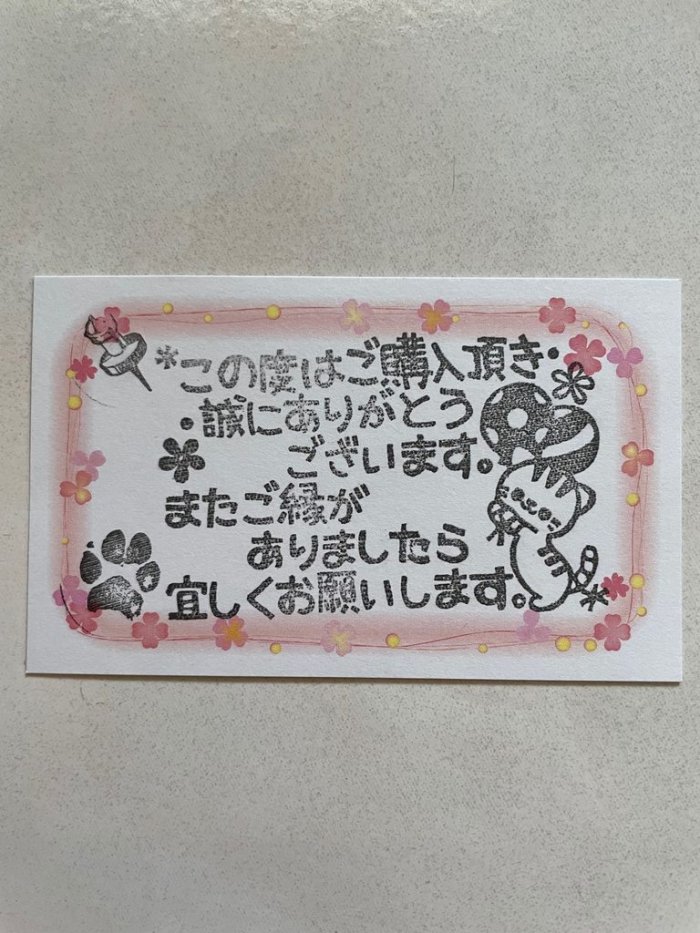 *この度はご購入頂き・
・誠にありがとう
ございます。
またご縁が
ありましたら
宜しくお願いします。